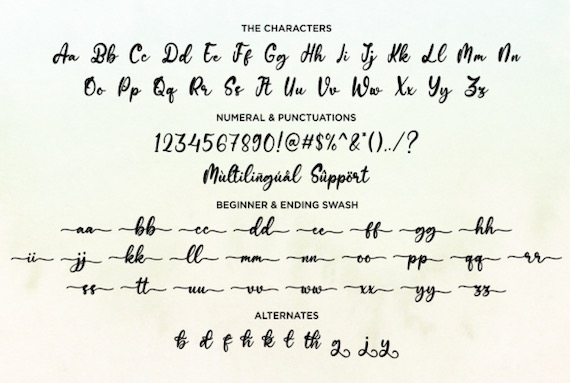 THE CHARACTERS
Aa Bb Cc Dd Ee Ff Gg Hh Ii Jj Kk Ll Mm Nn
Oo Pp Qq Rr Ss Tt Uu Vv Ww Xx Yy Zz
NUMERAL & PUNCTUATIONS
1234567890!@#$%^&*()../?
Mùltilingúâl Sûppört
BEGINNER & ENDING SWASH
aa bb cc dd ee ff gg hh
ii jj kk ll mm nn oo pp qq rr
ss tt uu vv ww xx yy zz
ALTERNATES
b d f h k t th g j y